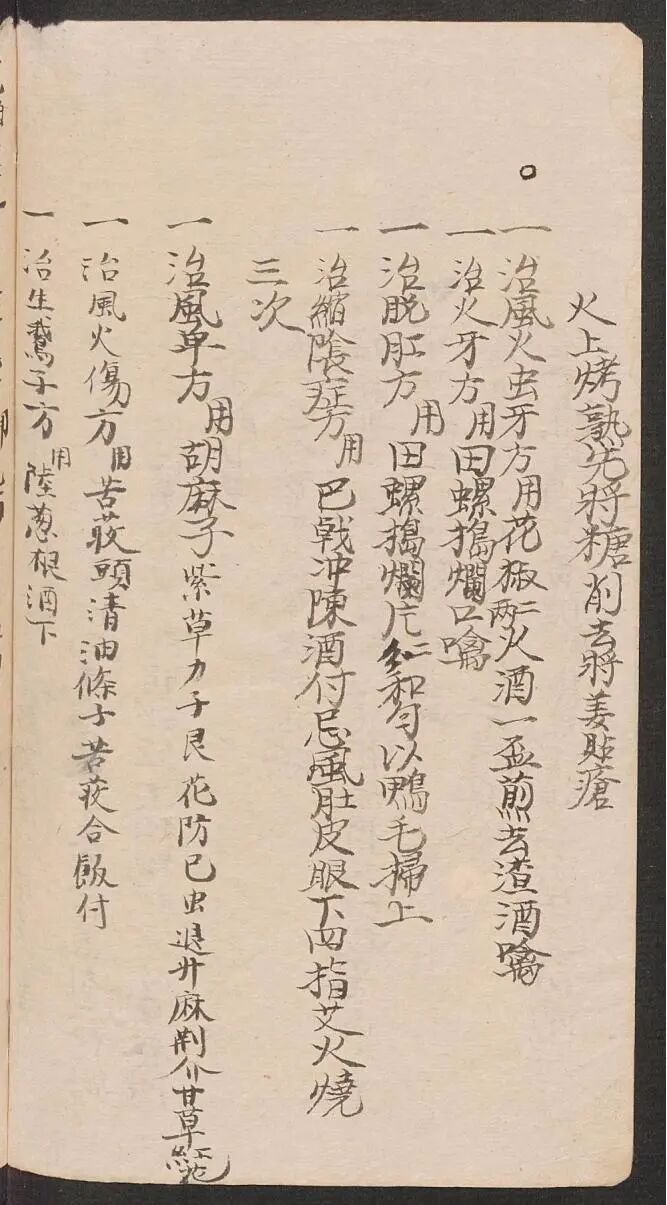 火上烤熟先將糖削去將姜貼瘡
一治風火虫牙方用花椒二兩火酒一盃煎去渣酒噙
一治火牙方用田螺搗爛口噙
一治脱肛方用田螺搗爛片和匀以鴨毛掃上
一治縮陰症方用巴戟冲陳酒付忌風肚皮眼下四指艾火燒
三次
一治風单方用胡麻子紫草力子艮花防已虫退升麻荆介甘草
一治風火傷方用苦荍頭清油條子苦荍合飯付
一治生鵞子方用陸葱根酒下